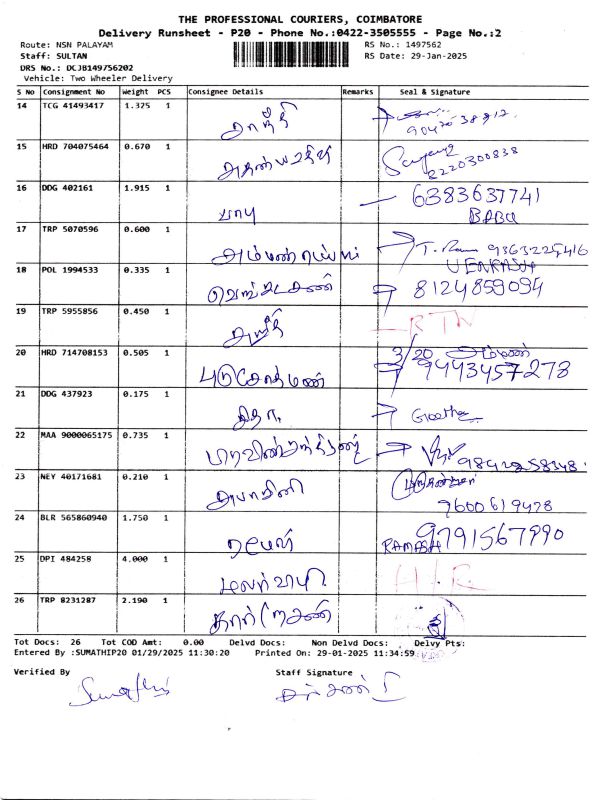 THE PROFESSIONAL COURIERS, COIMBATORE
Delivery Runsheet - P20 - Phone No.:0422-3505555 - Page No.:2
Route: NSN PALAYAM RS No.: 1497562
Staff: SULTAN RS Date: 29-Jan-2025
DRS No.: DCJB149756202
Vehicle: Two Wheeler Delivery
S No Consignment No Weight PCS Consignee Details Remarks Seal & Signature
14 TCG 41493417 1.325 1
சாந்தி
15 HRD 704075464 0.670 1
8220300838
16 DDG 402161 1.915 1 6383637741
பாபு BABU
17 TRP 5070596 0.600 1
T. Rama 9363225416
18 POL 1994533 0.335 1
வெங்கடேசன் 8124859094
19 TRP 5955856 0.450 1
RTN
20 HRD 714708153 0.505 1 3/20
புருசோத்மண் 9443457278
21 DDG 437923 0.175 1
கீதா Geetha
22 MAA 9000065175 0.735 1
9842258348
23 NEY 40171681 0.210 1
அபாமினி 7600619478
24 BLR 565860940 1.750 1
ரமேஷ் RAMASH 9791567990
25 DPI 484258 4.000 1
26 TRP 8231287 2.190 1
Tot Docs: 26 Tot COD Amt: 0.00 Delvd Docs: Non Delvd Docs: Delvy Pts:
Entered By :SUMATHIP20 01/29/2025 11:30:20 Printed On: 29-01-2025 11:34:59
Verified By Staff Signature
Sumathi